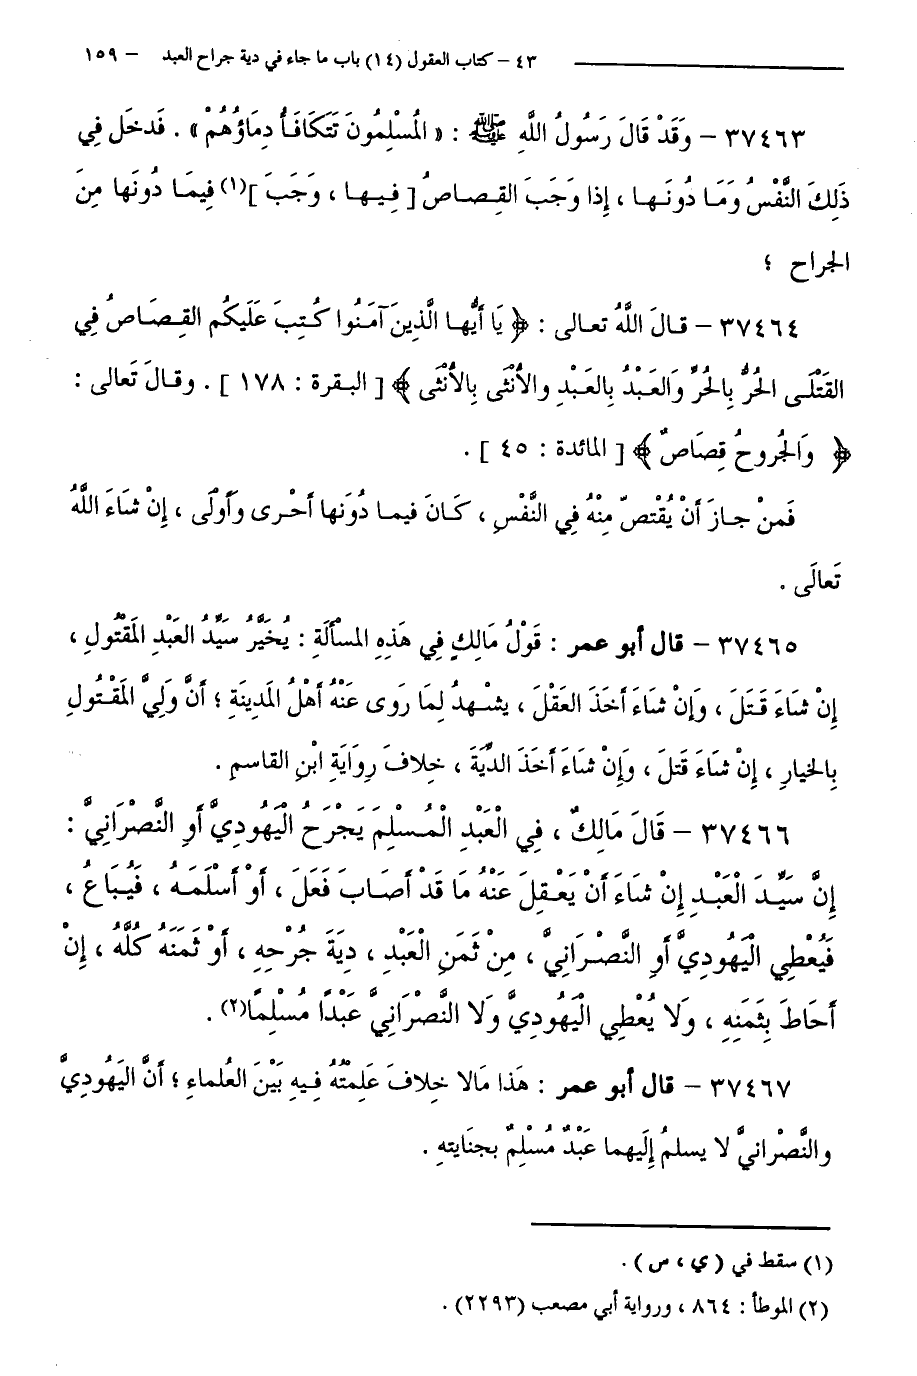 ٤٣ – كتاب العقول (١٤) باب ما جاء في دية جراح العبد – ١٥٩
٣٧٤٦٣ – وَقَدْ قَالَ رَسُولُ اللَّهِ ﷺ : « الْمُسْلِمُونَ تَتَكَافَأُ دِمَاؤُهُمْ » . فَدخَل فِي
ذَلِكَ النَّفْسُ وَمَا دُونَـهـا ، إذا وَجَبَ القِـصـاصُ [ فِيـهـا ، وَجَبَ ](١) فِيمَـا دُونَها مِنَ
الجراح ؛
٣٧٤٦٤ – قـالَ اللَّهُ تعـالى : ﴿ يَا أَيُّهـا الَّذِينَ آمَنُوا كُتِبَ عَلَيكُم القِـصَـاصُ فِي
القَتْلَـى الحُرُّ بِالحُرِّ وَالعَبْدُ بِالعَبْدِ والأُنْثَى بِالأُنْثَى ﴾ [ البـقـرة : ١٧٨ ] . وقـالَ تَعالى :
﴿ وَالجُرُوحُ قِصَاصٌ ﴾ [ المائدة : ٤٥ ] .
فَمنْ جـازَ أَنْ يُقْتصّ مِنْهُ فِي النَّفْسِ ، كَـانَ فيمـا دُونَها أَحْرى وَأَوْلَى ، إِنْ شَاءَ اللَّهُ
تَعالَى .
٣٧٤٦٥ – قال أبو عمر : قَوْلُ مَالِكٍ فِي هَذِهِ المسْأَلَةِ : يُخَيَّرُ سَيِّدُ العَبْدِ المَقْتُولِ ،
إِنْ شَاءَ قَـتَلَ ، وَإِنْ شَاءَ أَخَذَ العَقْلَ ، يشْـهـدُ لِمَا رَوى عَنْهُ أَهْلُ المَدِينَةِ ؛ أَنَّ وَلِيَّ المَقْـتُولِ
بِالخيارِ ، إِنْ شَاءَ قَتلَ ، وَإِنْ شَاءَ أَخَذَ الدِّيَةَ ، خِلافَ رِوَايَةِ ابْنِ القاسمِ .
٣٧٤٦٦ – قَالَ مَالِكٌ ، فِي الْعَبْدِ الْمُـسْلِمِ يَجْرَحُ الْيَهُودِيَّ أَوِ النَّصْرَانِيَّ :
إِنَّ سَيِّـدَ الْعَبْـدِ إِنْ شَاءَ أَنْ يَعْـقِلَ عَنْهُ مَا قَدْ أَصَابَ فَعَلَ ، أَوْ أَسْلَمَـهُ ، فَيُبَـاعُ ،
فَيُعْطِي الْيَهُودِيَّ أَوِ النَّصْـرَانِيَّ ، مِنْ ثَمَنِ الْعَبْدِ ، دِيَةَ جُرْحِهِ ، أَوْ ثَمَنَهُ كُلَّهُ ، إِنْ
أَحَاطَ بِثَمَنِهِ ، وَلا يُعْطِي الْيَهُودِيَّ وَلا النَّصْرَانِيَّ عَبْدًا مُسْلِمًا(٢) .
٣٧٤٦٧ – قال أبو عمر : هَذا مَالا خلافَ عَلِمتُهُ فِـيـهِ بَيْنَ العُلماءِ ؛ أَنَّ اليَهُوديَّ
والنَّصْرانيَّ لا يسلمُ إِلَيهما عَبْدٌ مُسْلِمٌ بجنَايتهِ .
(١) سقط في ( ي ، س ) .
(٢) الموطأ : ٨٦٤ ، ورواية أبي مصعب (٢٢٩٣) .